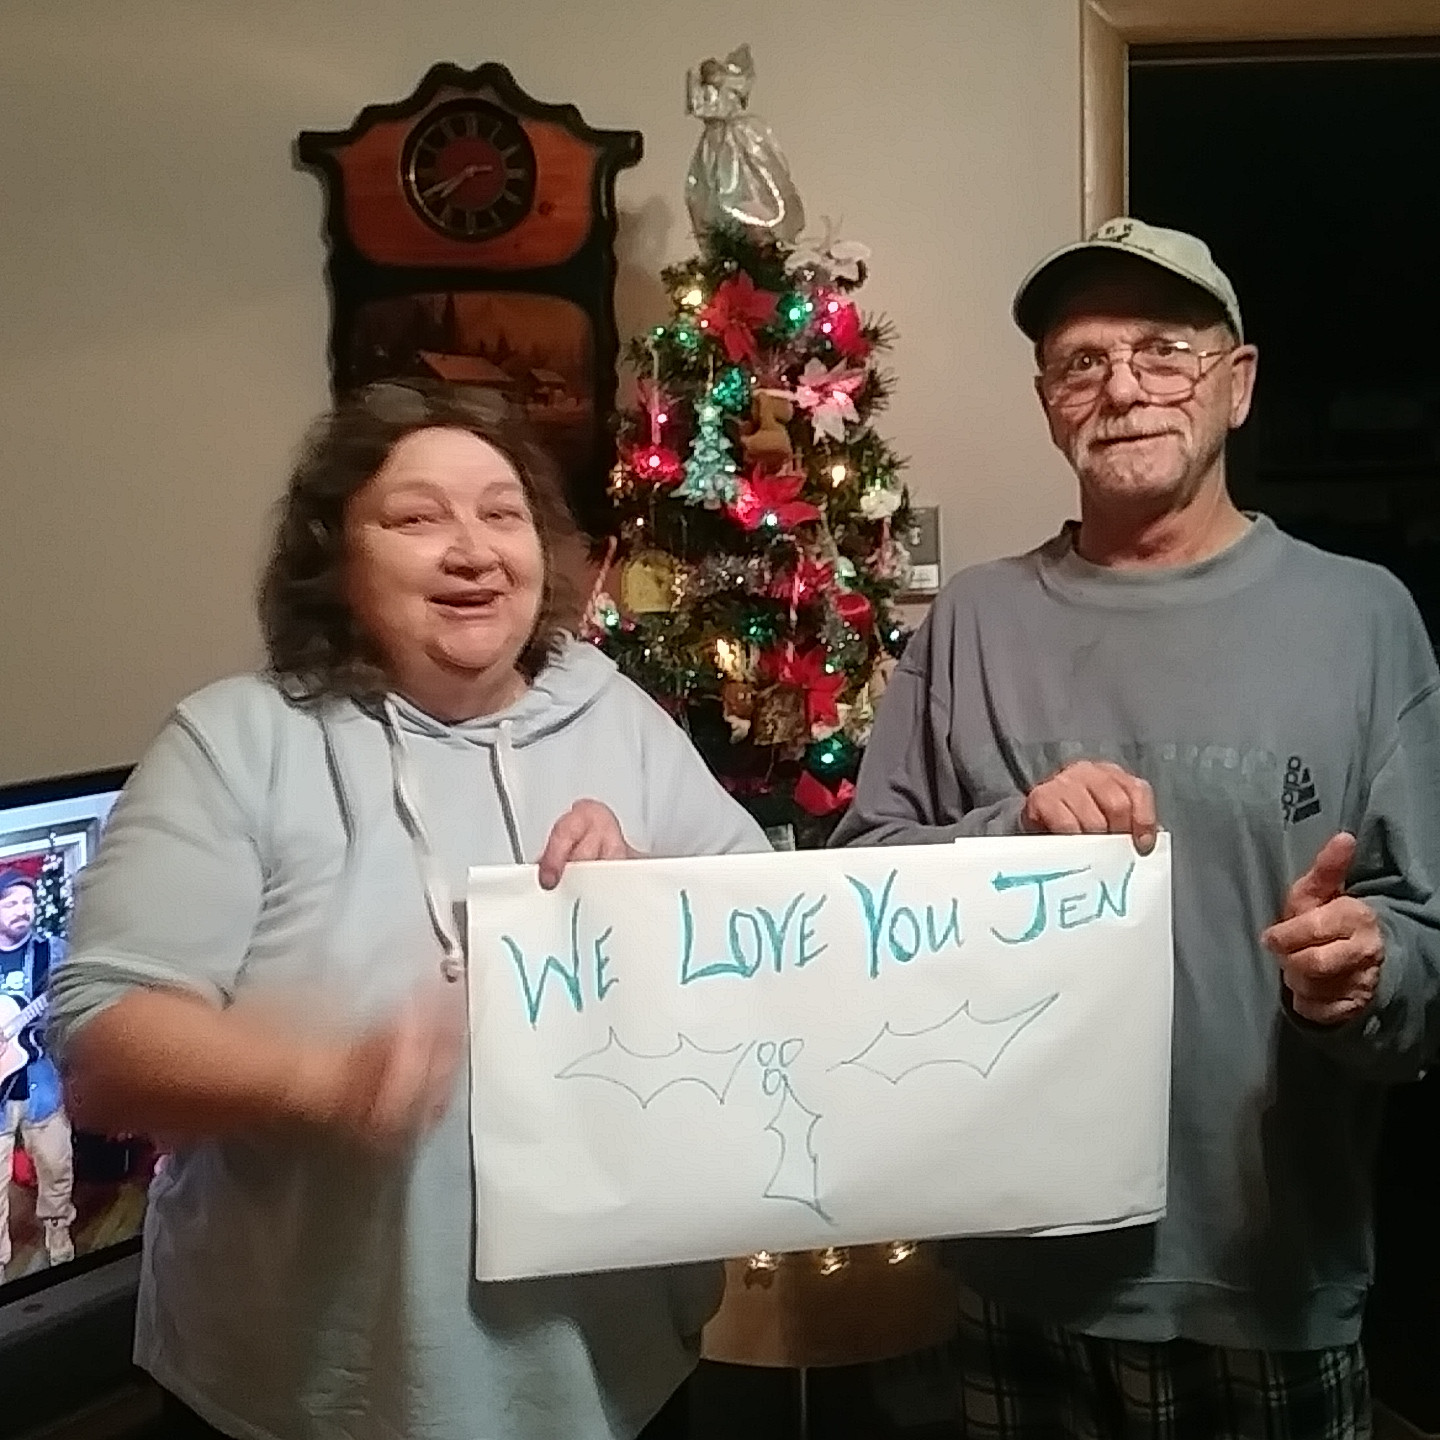 WE LOVE YOU JEN